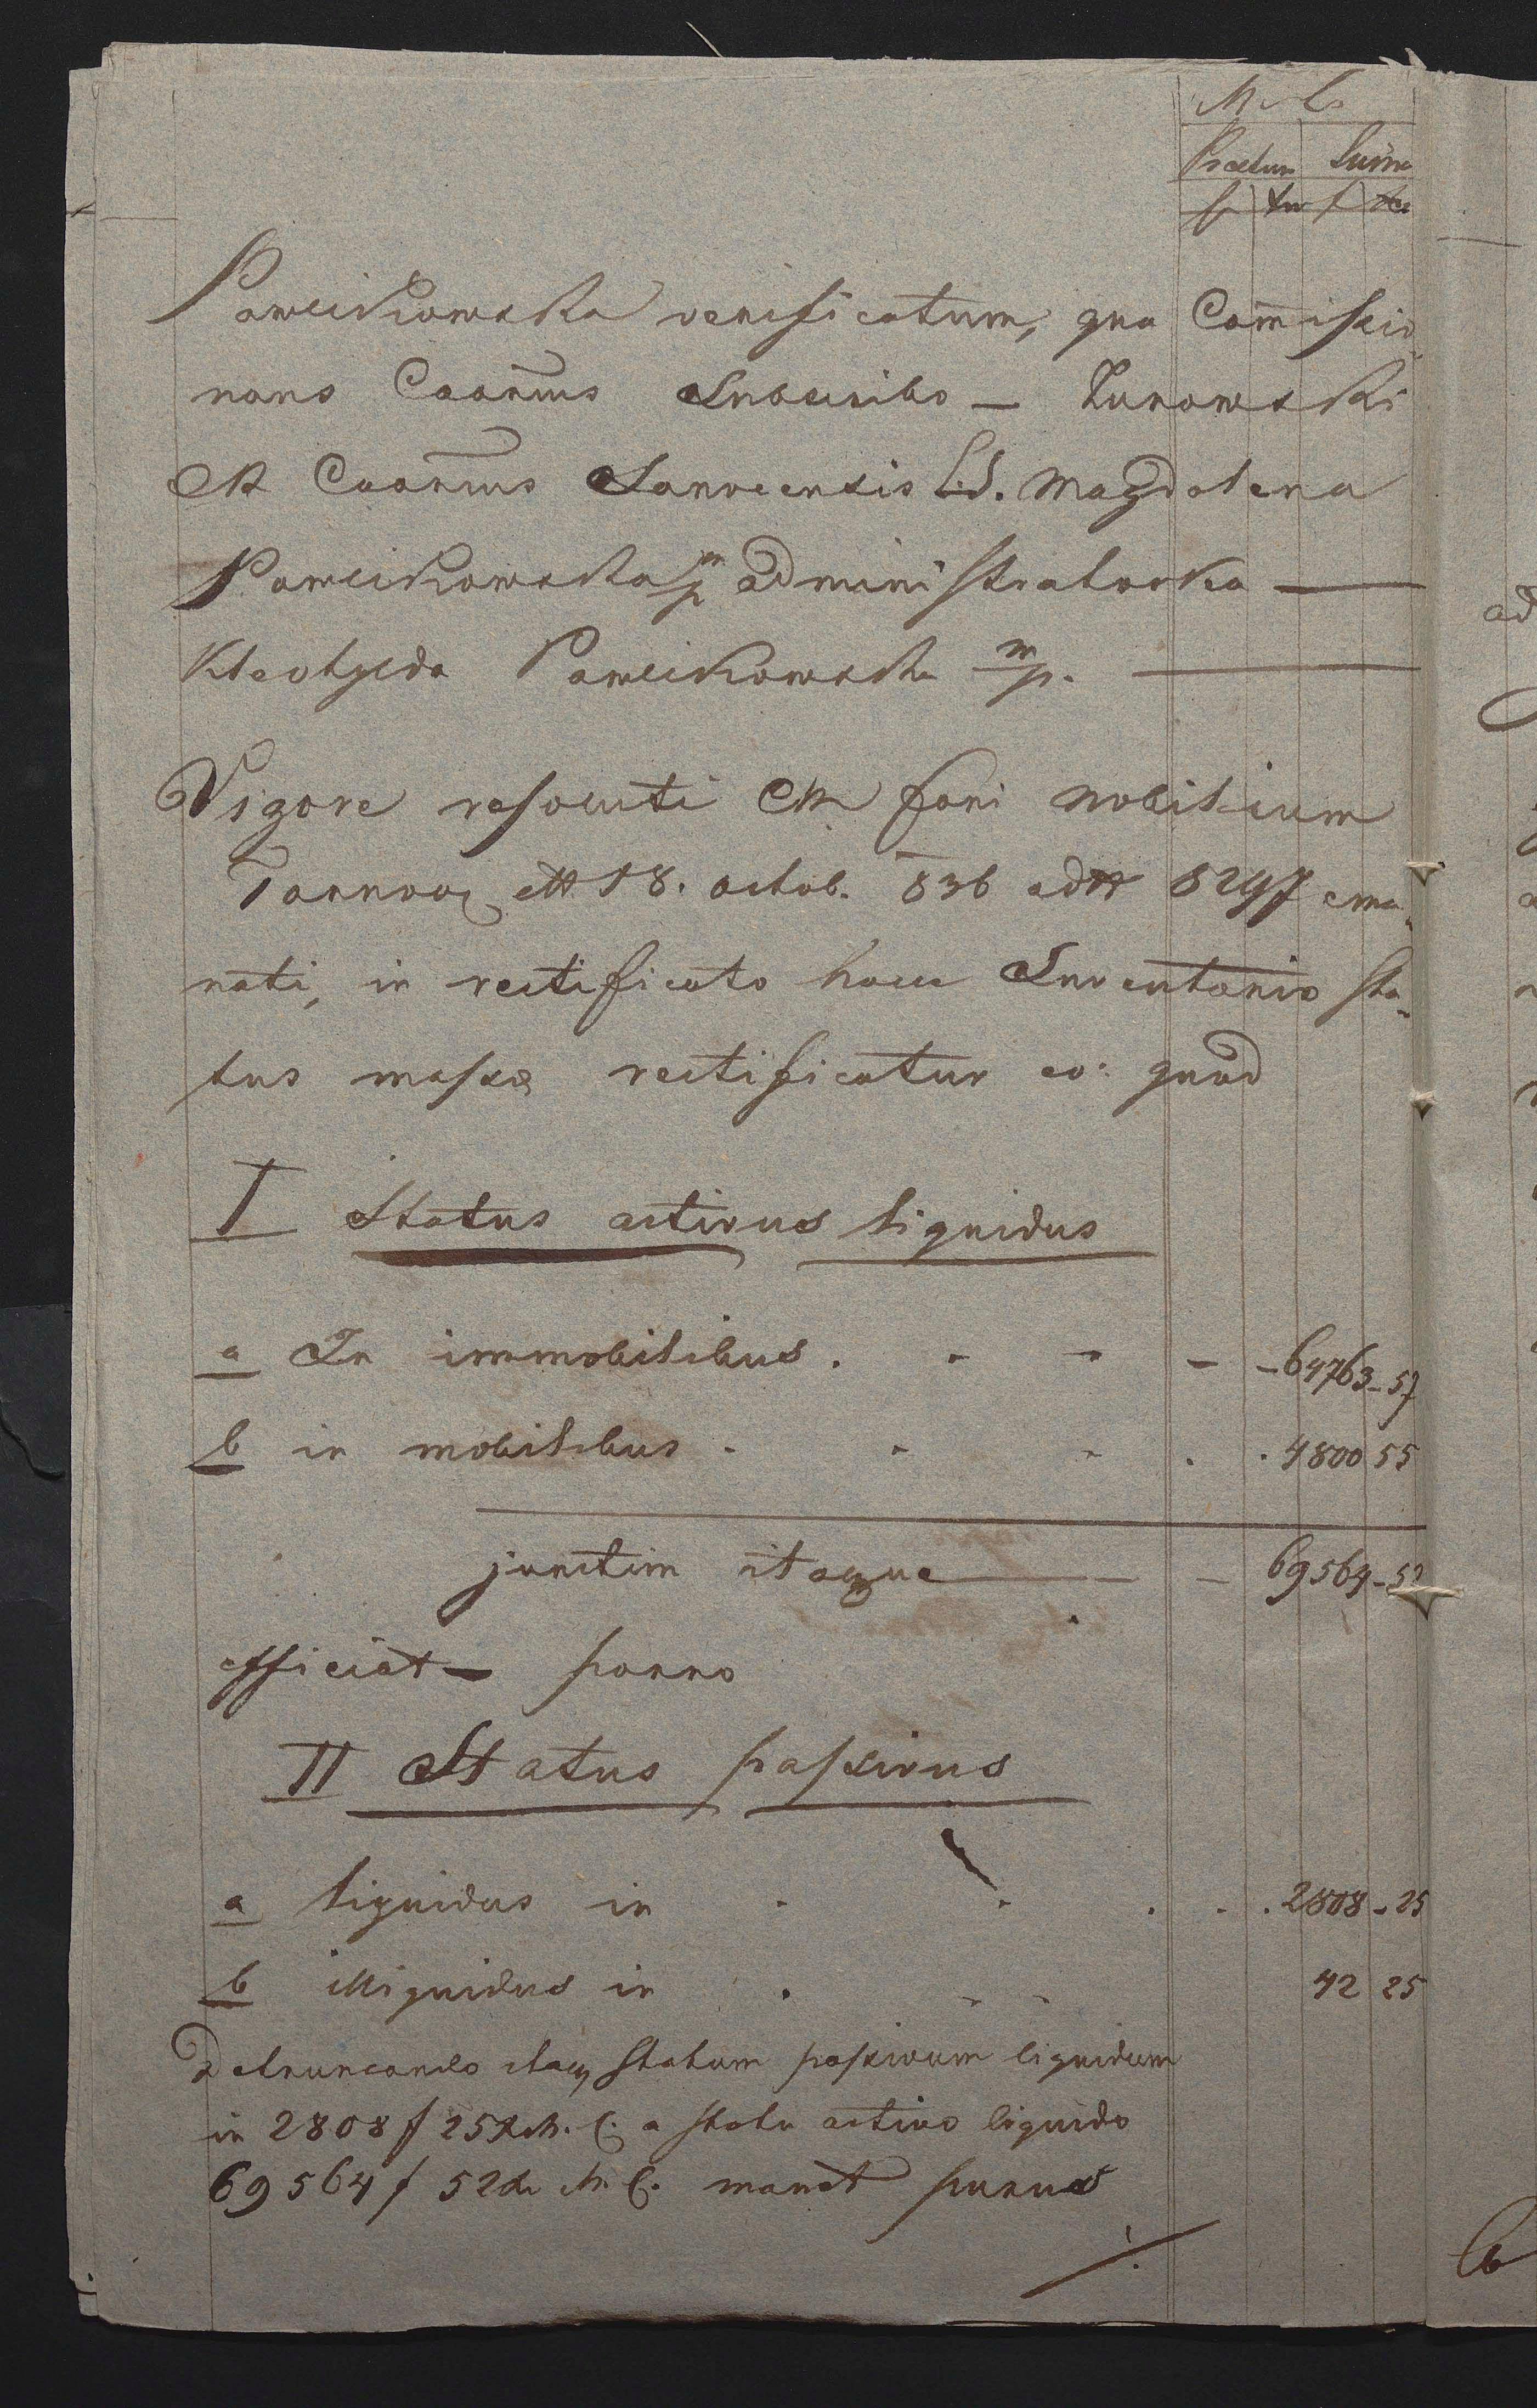 M C
Pretium Summa
f xr f xr
Pawlikowska verificatum, qua Commissio-
nans Caarus Subscribo — Żurowski
CR Caarus Sanocensis L.S. Magdalena
Pawlikowska mp administratorka —
Kleotylda Pawlikowska mp. —
Vigore resoluti CR fori nobilium
Tarnov. dtt 18. octob. 836 ad N 8297 ema-
nati, in rectificato hocce Inventario sta-
tus massæ rectificatur eo: quod
I Status activus liquidus
a In immobilibus . - - - - 64763 - 57
b in mobilibus . - - . . 4800 55
junctim itaque — - - 69564 - 52
efficiat — porro
II Status passivus
a liquidus in . . . . . 2808 - 25
b illiquidus in . . . 42 25
Detruncando itaq statum passivum liquidum
in 2808 f 25 xr M. C. a statu activo liquido
69564 f 52 xr M. C. manet purus
./.
ad